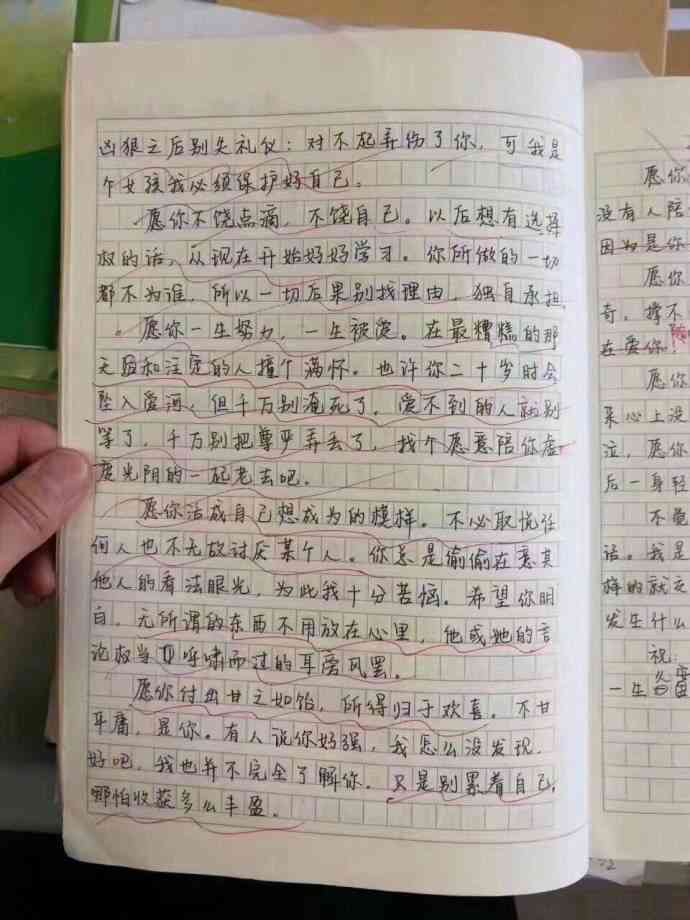 凶狠之后别失礼仪：对不起弄伤了你，可我是
个女孩我必须保护好自己。
愿你不饶点滴，不饶自己。以后想有选择
权的话，从现在开始好好学习。你所做的一切
都不为谁，所以一切后果别找理由，独自承担。
愿你一生努力，一生被爱。在最糟糕的那
天跟和注定的人撞个满怀。也许你二十岁时会
坠入爱河，但千万别淹死了，爱不到的人就别
等了，千万别把尊严弄丢了，找个愿意陪你虚
度光阴的一起老去吧。
愿你活成自己想成为的模样。不必取悦任
何人也不无故讨厌某个人。你总是偷偷在意其
他人的看法眼光，为此我十分苦恼。希望你明
白，无所谓的东西不用放在心里，他或她的言
论权当呼啸而过的耳旁风罢。
愿你付出甘之如饴，所得归于欢喜。不甘
平庸，是你。有人说你好强，我怎么没发现，
好吧，我也并不完全了解你。只是别累着自己，
哪怕收获多么丰盈。
愿你
没有人陪
因为是你
愿你
奇，撑不
在爱你
愿你
来心上没
泣，愿你
后一身轻
不觉
话。我是
发生什么
祝：
一生